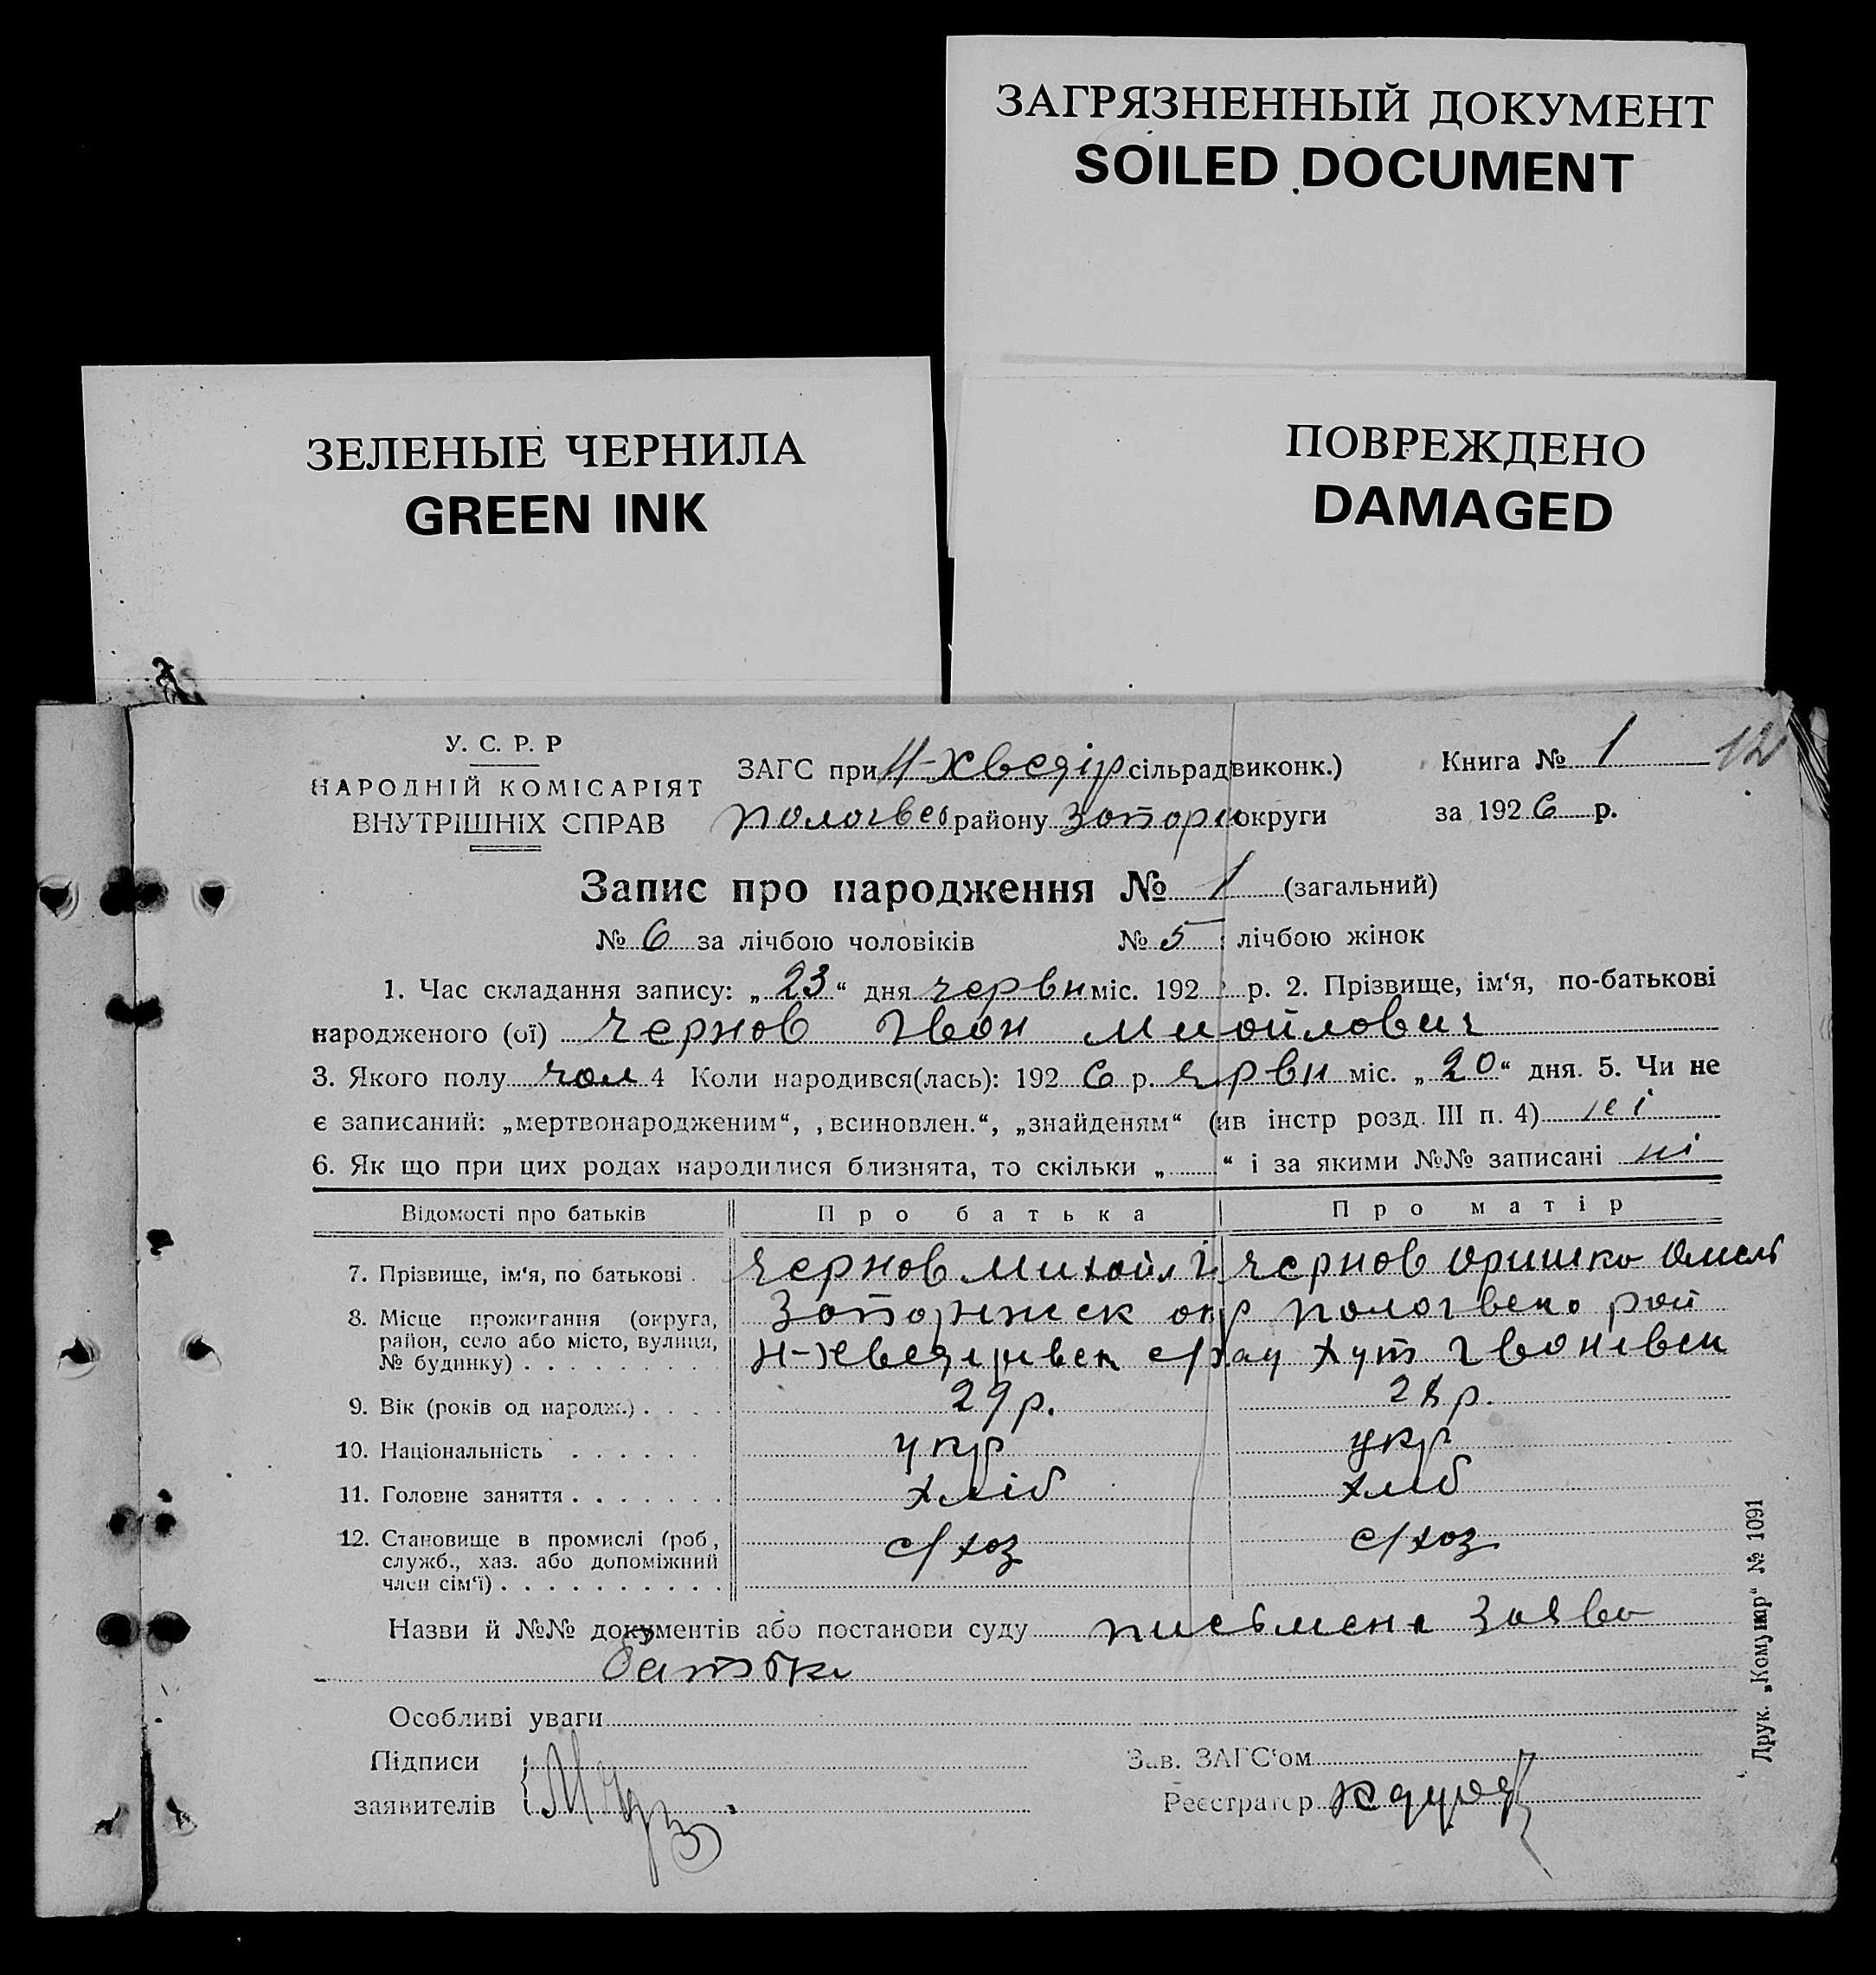 ЗАГРЯЗНЕННЫЙ ДОКУМЕНТ
SOILED DOCUMENT
ЗЕЛЕНЫЕ ЧЕРНИЛА
GREEN INK
ПОВРЕЖДЕНО
DAMAGED
У. С. Р. Р
НАРОДНІЙ КОМІСАРІЯТ
ВНУТРІШНІХ СПРАВ
ЗАГС при Н-Хведір сільрад виконк.)
району Запоріз округи
Книга № 1 12
за 1926 р.
Запис про народження № 1 (загальний)
№ 6 за лічбою чоловіків № 5 лічбою жінок
1. Час складання запису: „23“ дня червн міс. 192 р. 2. Прізвище, ім‘я, по-батькові
народженого (ої) Чернов Іван
3. Якого полу чол 4 Коли народився(лась): 1926 р. міс. „20“ дня. 5. Чи не
є записаний: „мертвонародженим“, „всиновлен.“, „знайденям“ (ив інстр розд. III п. 4) ні
6. Як що при цих родах народилися близнята, то скільки „ “ і за якими №№ записані ні
Відомості про батьків Про батька Про матір
7. Прізвище, ім‘я, по батькові Чернов Михайл І Чернов Оришка Омель
8. Місце прожигання (округа,
район, село або місто, вулиця,
№ будинку)
окр рай
с/рад хут
9. Вік (років од народж.) 29 р. 28 р.
10. Національність укр укр
11. Головне заняття хліб хліб
12. Становище в промислі (роб,
служб., хаз. або допоміжний
член сім‘ї)
с/хоз с/хоз
Назви й №№ документів або постанови суду заява
батька
Особливі уваги
Підписи
заявителів
Зав. ЗАГС‘ом
Реєстратор
Друк. „Комунар“ № 1091